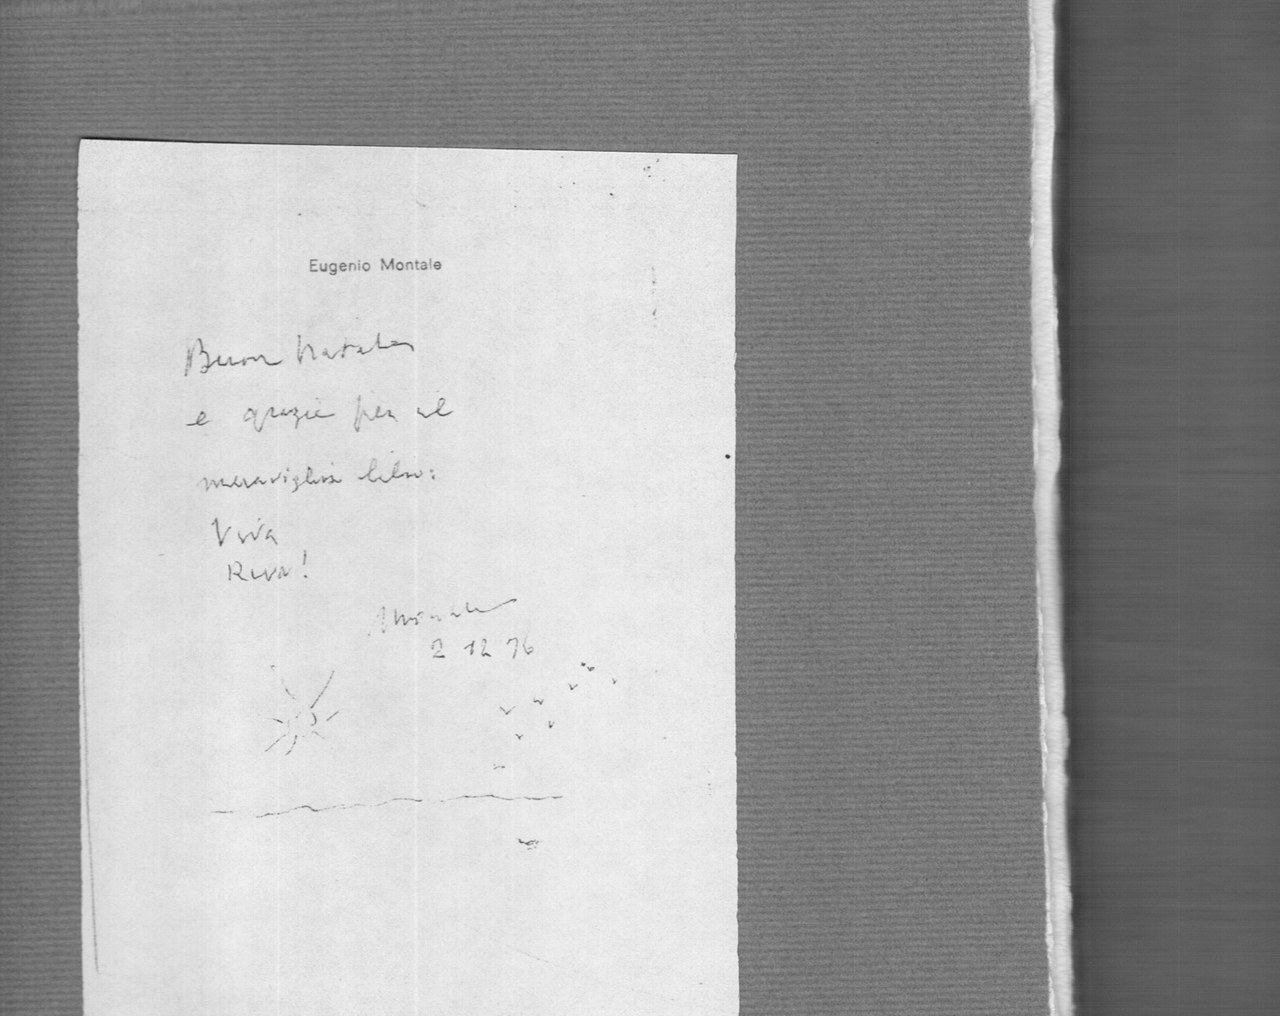 Eugenio Montale
Buon Natale
e grazie per il
meraviglioso libro:
Viva
Riva!
Montale
2 12 76